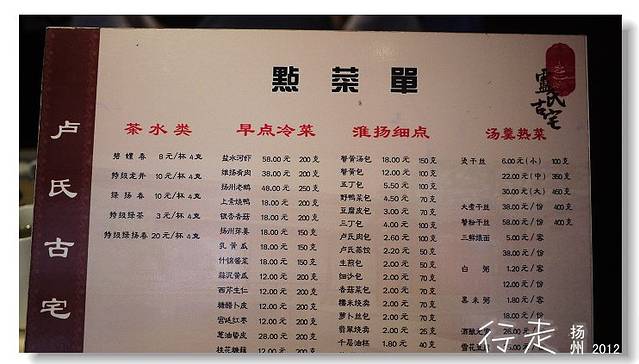 點菜單
盧氏古宅
卢氏古宅
茶水类
碧螺春 8元/杯 4克
特级龙井 10元/杯 4克
绿扬春 10元/杯 4克
特级绿茶 3元/杯 4克
特级绿扬春 20元/杯 4克
早点冷菜
盐水河虾 58.00元 200克
维扬肴肉 38.00元 200克
扬州老鹅 48.00元 250克
上素烧鸭 18.00元 200克
银杏香菇 18.00元 200克
扬州芽姜 18.00元 150克
乳黄瓜 18.00元 150克
什锦酱菜 18.00元 150克
蒜泥黄瓜 12.00元 200克
西芹生仁 12.00元 200克
糖醋卜皮 12.00元 200克
宫廷红枣 12.00元 200克
葱油蛰皮 28.00元 200克
桂花糖藕
淮扬细点
蟹黄汤包 18.00元 150克
蟹黄包 12.00元 100克
五丁包 5.50元 100克
野鸭菜包 4.50元 70克
豆腐皮包 3.00元 70克
三丁包 4.00元 100克
卢氏肉包 2.60元 100克
卢氏蒸饺 2.20元 50克
生煎包 2.00元 50克
细沙包 2.00元 70克
香菇菜包 2.00元 70克
糯米烧卖 2.00元 70克
萝卜丝包 2.00元 70克
翡翠烧卖 2.00元 25克
千层油糕 1.80元 40克
汤羹热菜
烫干丝 6.00元(小) 100克
22.00元(中) 350克
30.00元(大) 450克
大煮干丝 38.00元/份 400克
蟹粉干丝 58.00元/份 400克
三鲜煨面 5.00元/客
38.00元/份
白粥 1.20元/客
12.00元/份
黑米粥 1.80元/客
18.00元/份
行走 扬州 2012